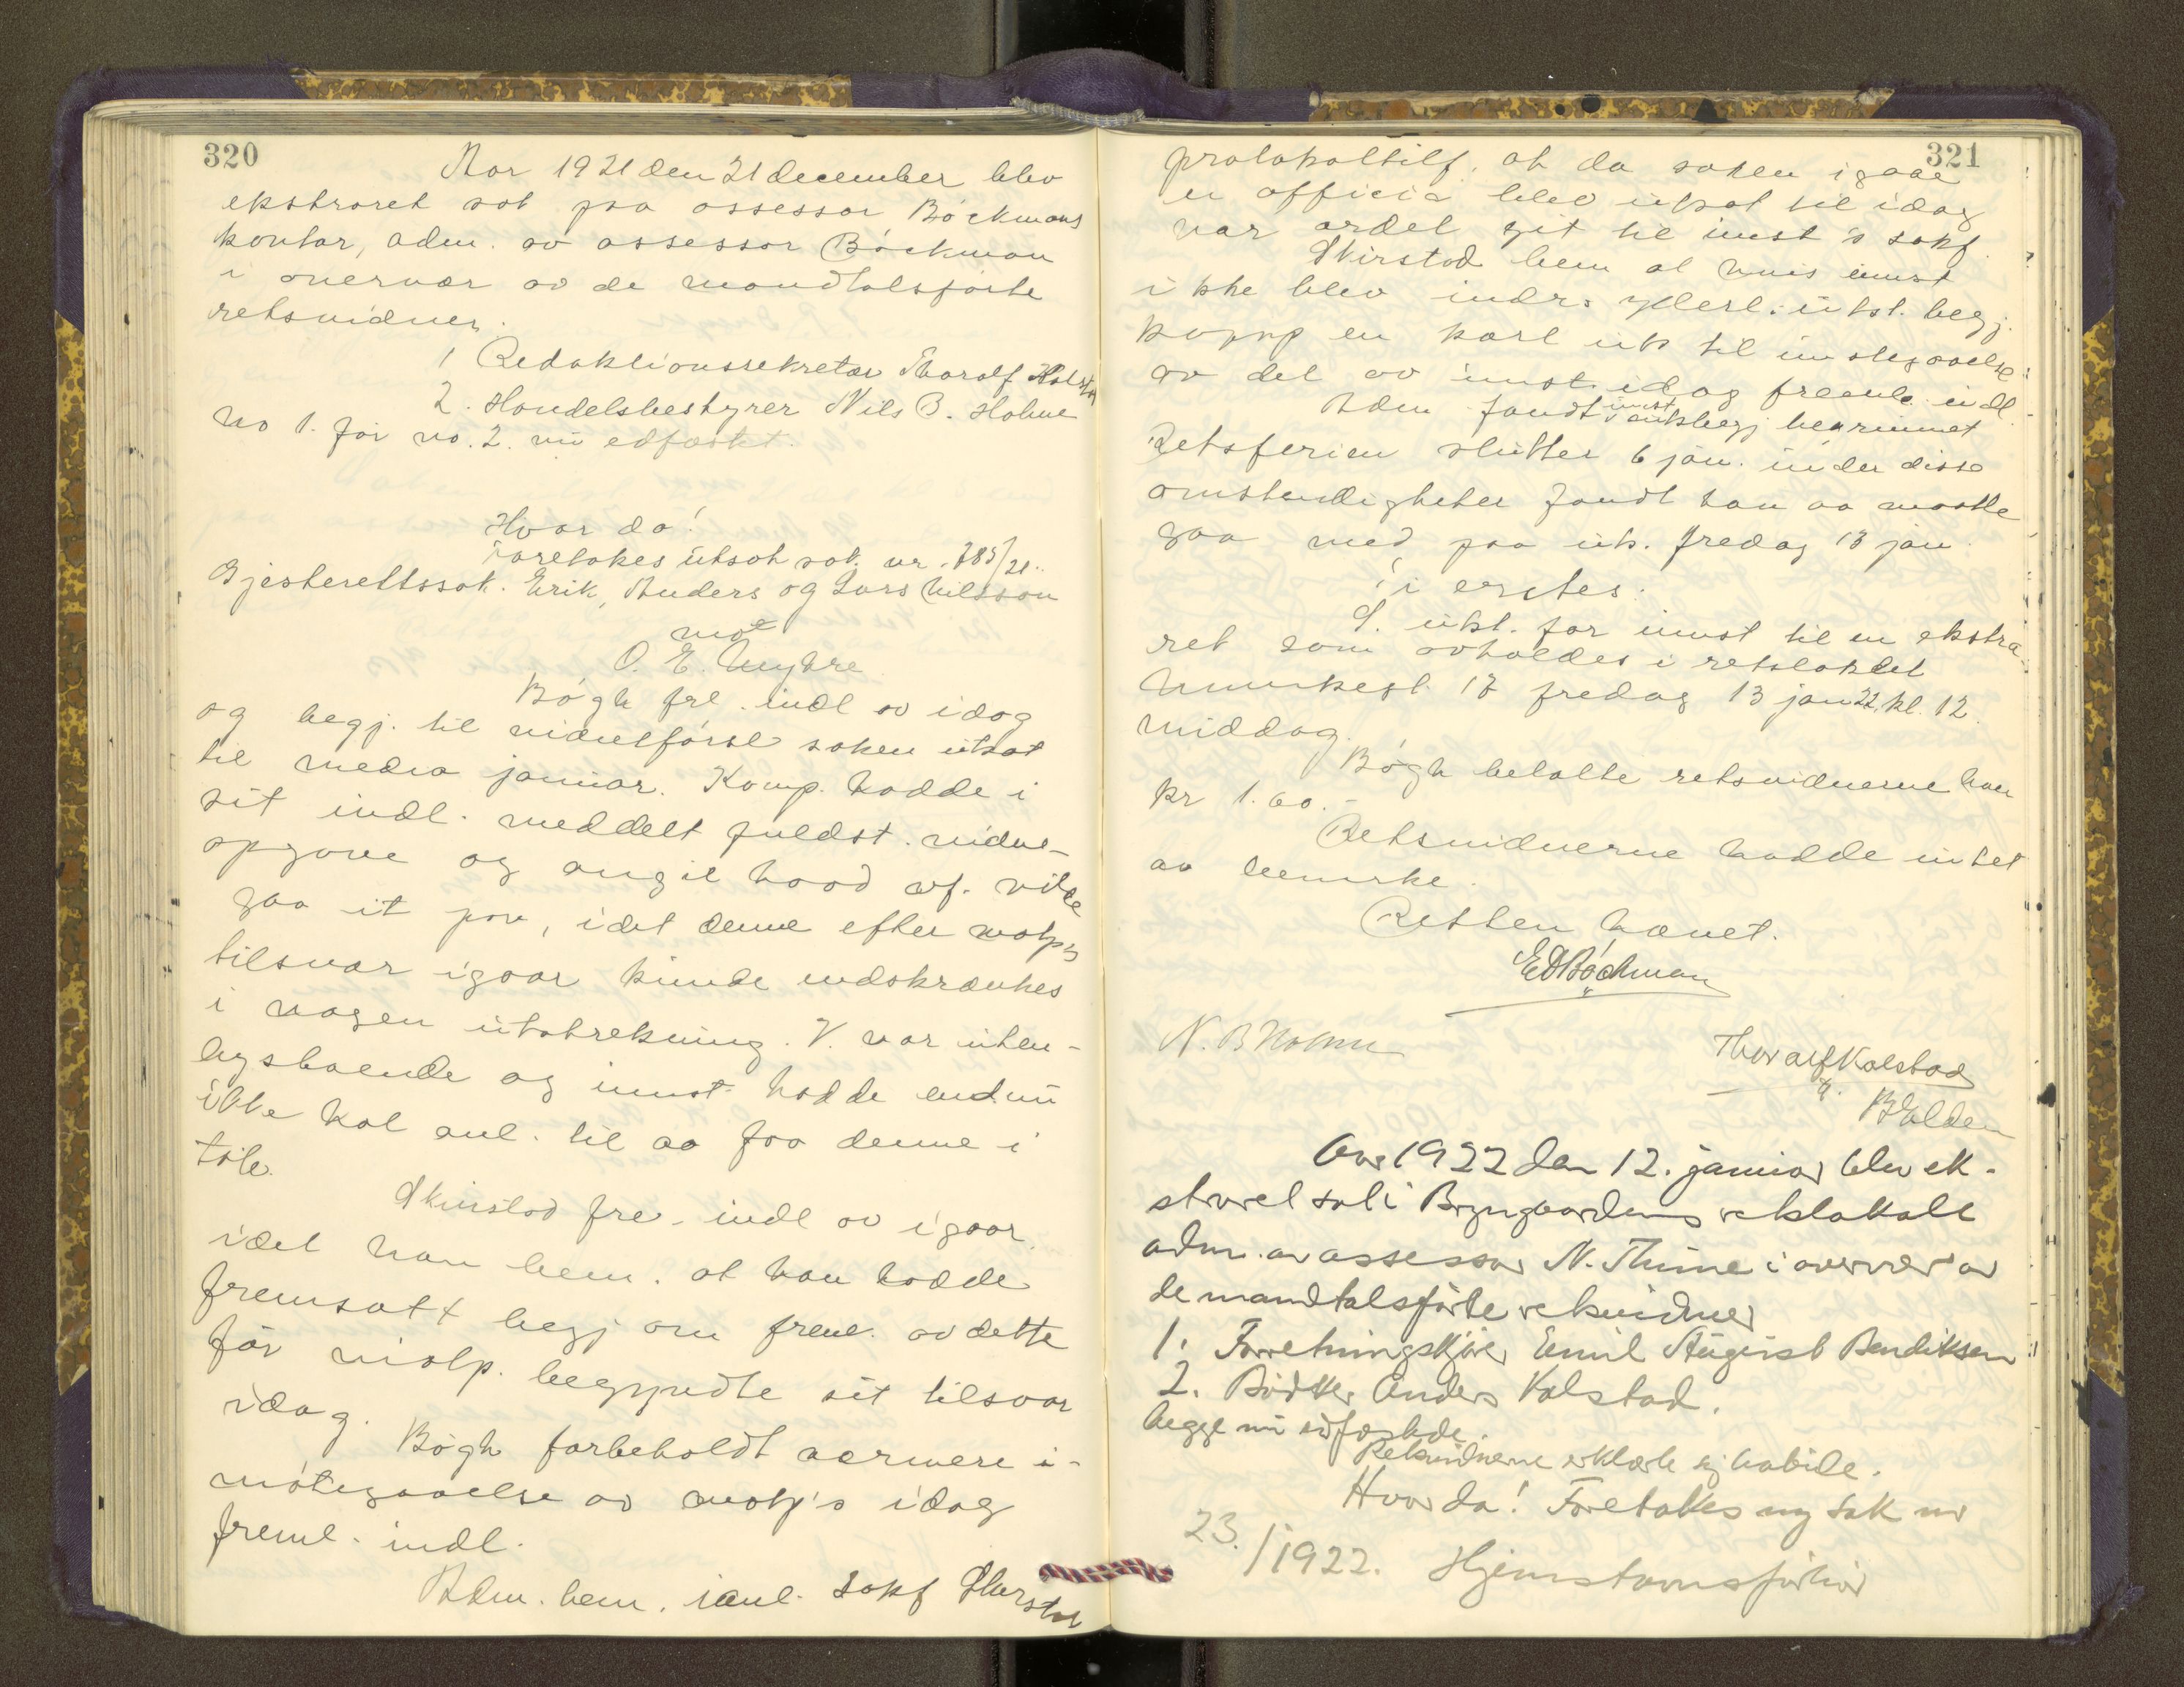 320
Aar 1921 den 21 december blev
ekstraret sat paa assessor Böckmans
kontor, adm. av assessor Böckman
i overvær av de mandtalsførte
retsvidner.
1 Redaktionssekretær Thoralf Kalstad
2. Handelsbestyrer Nils B. Holme
No 1. før no. 2. nu edfæstet.
Hvor da!
Foretokes utsat sak nr. 785/21.
Gjesteretssak. Erik, Anders og Lars Nilsson
mot
O. E. Myhre
Bøgh frl. indl av idag
og begj. til vidneførsel saken utsat
til medio januar. Komp. hadde i
sit indl. meddelt fuldst. vidne-
opgave og angit hvad vf. vilde
gaa ut paa, idet denne efter motp's
tilsvar igaar kunde indskrænkes
i nogen utstrekning. V. var uten-
bysboende og innst. hadde endnu
ikke hat anl. til aa faa denne i
tale.
Skirstad fre. indl av igaar
idet han bem. at han hadde
fremsatt begj om freml. av dette
før motp. begyndte sit tilsvar
idag.
Bøgh forbeholdt nærmere i-
møtegaaelse av motp's idag
freml. indl.
Adm. bem. i anl. sakf Skirstad
321
protokoltilf. at da saken igaar
ex officio blev utsat til idag
var ordet git til innst's sakf.
Skirstad bem at hvis innst
ikke blev indr. yderl. utst. begj.
komp en kort uts til imøtegaaelse
av det av innst. idag freml. indl.
Adm fandt innst utsbegj begrunnet
Retsferien slutter 6 jan. under disse
omstendigheter fandt han aa maatte
gaa med paa uts. fredag 13 jan
i erctes.
S. utst. for innst til en ekstra
ret som avholdes i retslokalet
Munkegt 17 fredag 13 jan 22. kl. 12
middag.
Bøgh betalte retsvidnerne hver
kr 1.60.-
Retsvidnerne hadde intet
aa bemerke.
Retten hævet.
Ed Böckman
N. B Holme
Thoralf Kalstad
B Halden
Aar 1922 den 12. januar blev ek-
straret sat i Bryngaardens retslokale
adm. av assessor N. Thune i overvær av
de mandtalsførte retsvidner
1. Forretningsfører Emil August Bendiksen
2. Bødker Anders Kalstad.
begge nu edfæstede.
Retsvidnerne erklærte sig habile.
Hvor da! Foretokes ny sak nr
23./1922. Hjemstavnsforhør